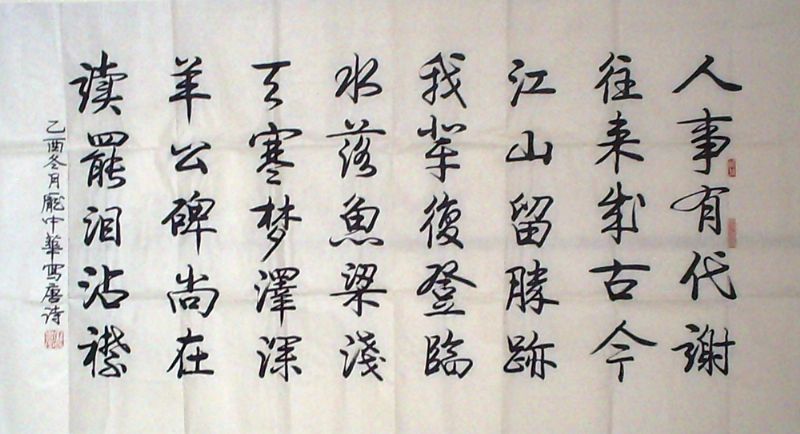 人事有代謝
往来成古今
江山留勝跡
我輩復登臨
水落魚梁淺
天寒梦澤深
羊公碑尚在
讀罷泪沾襟
乙酉冬月龐中華写唐诗